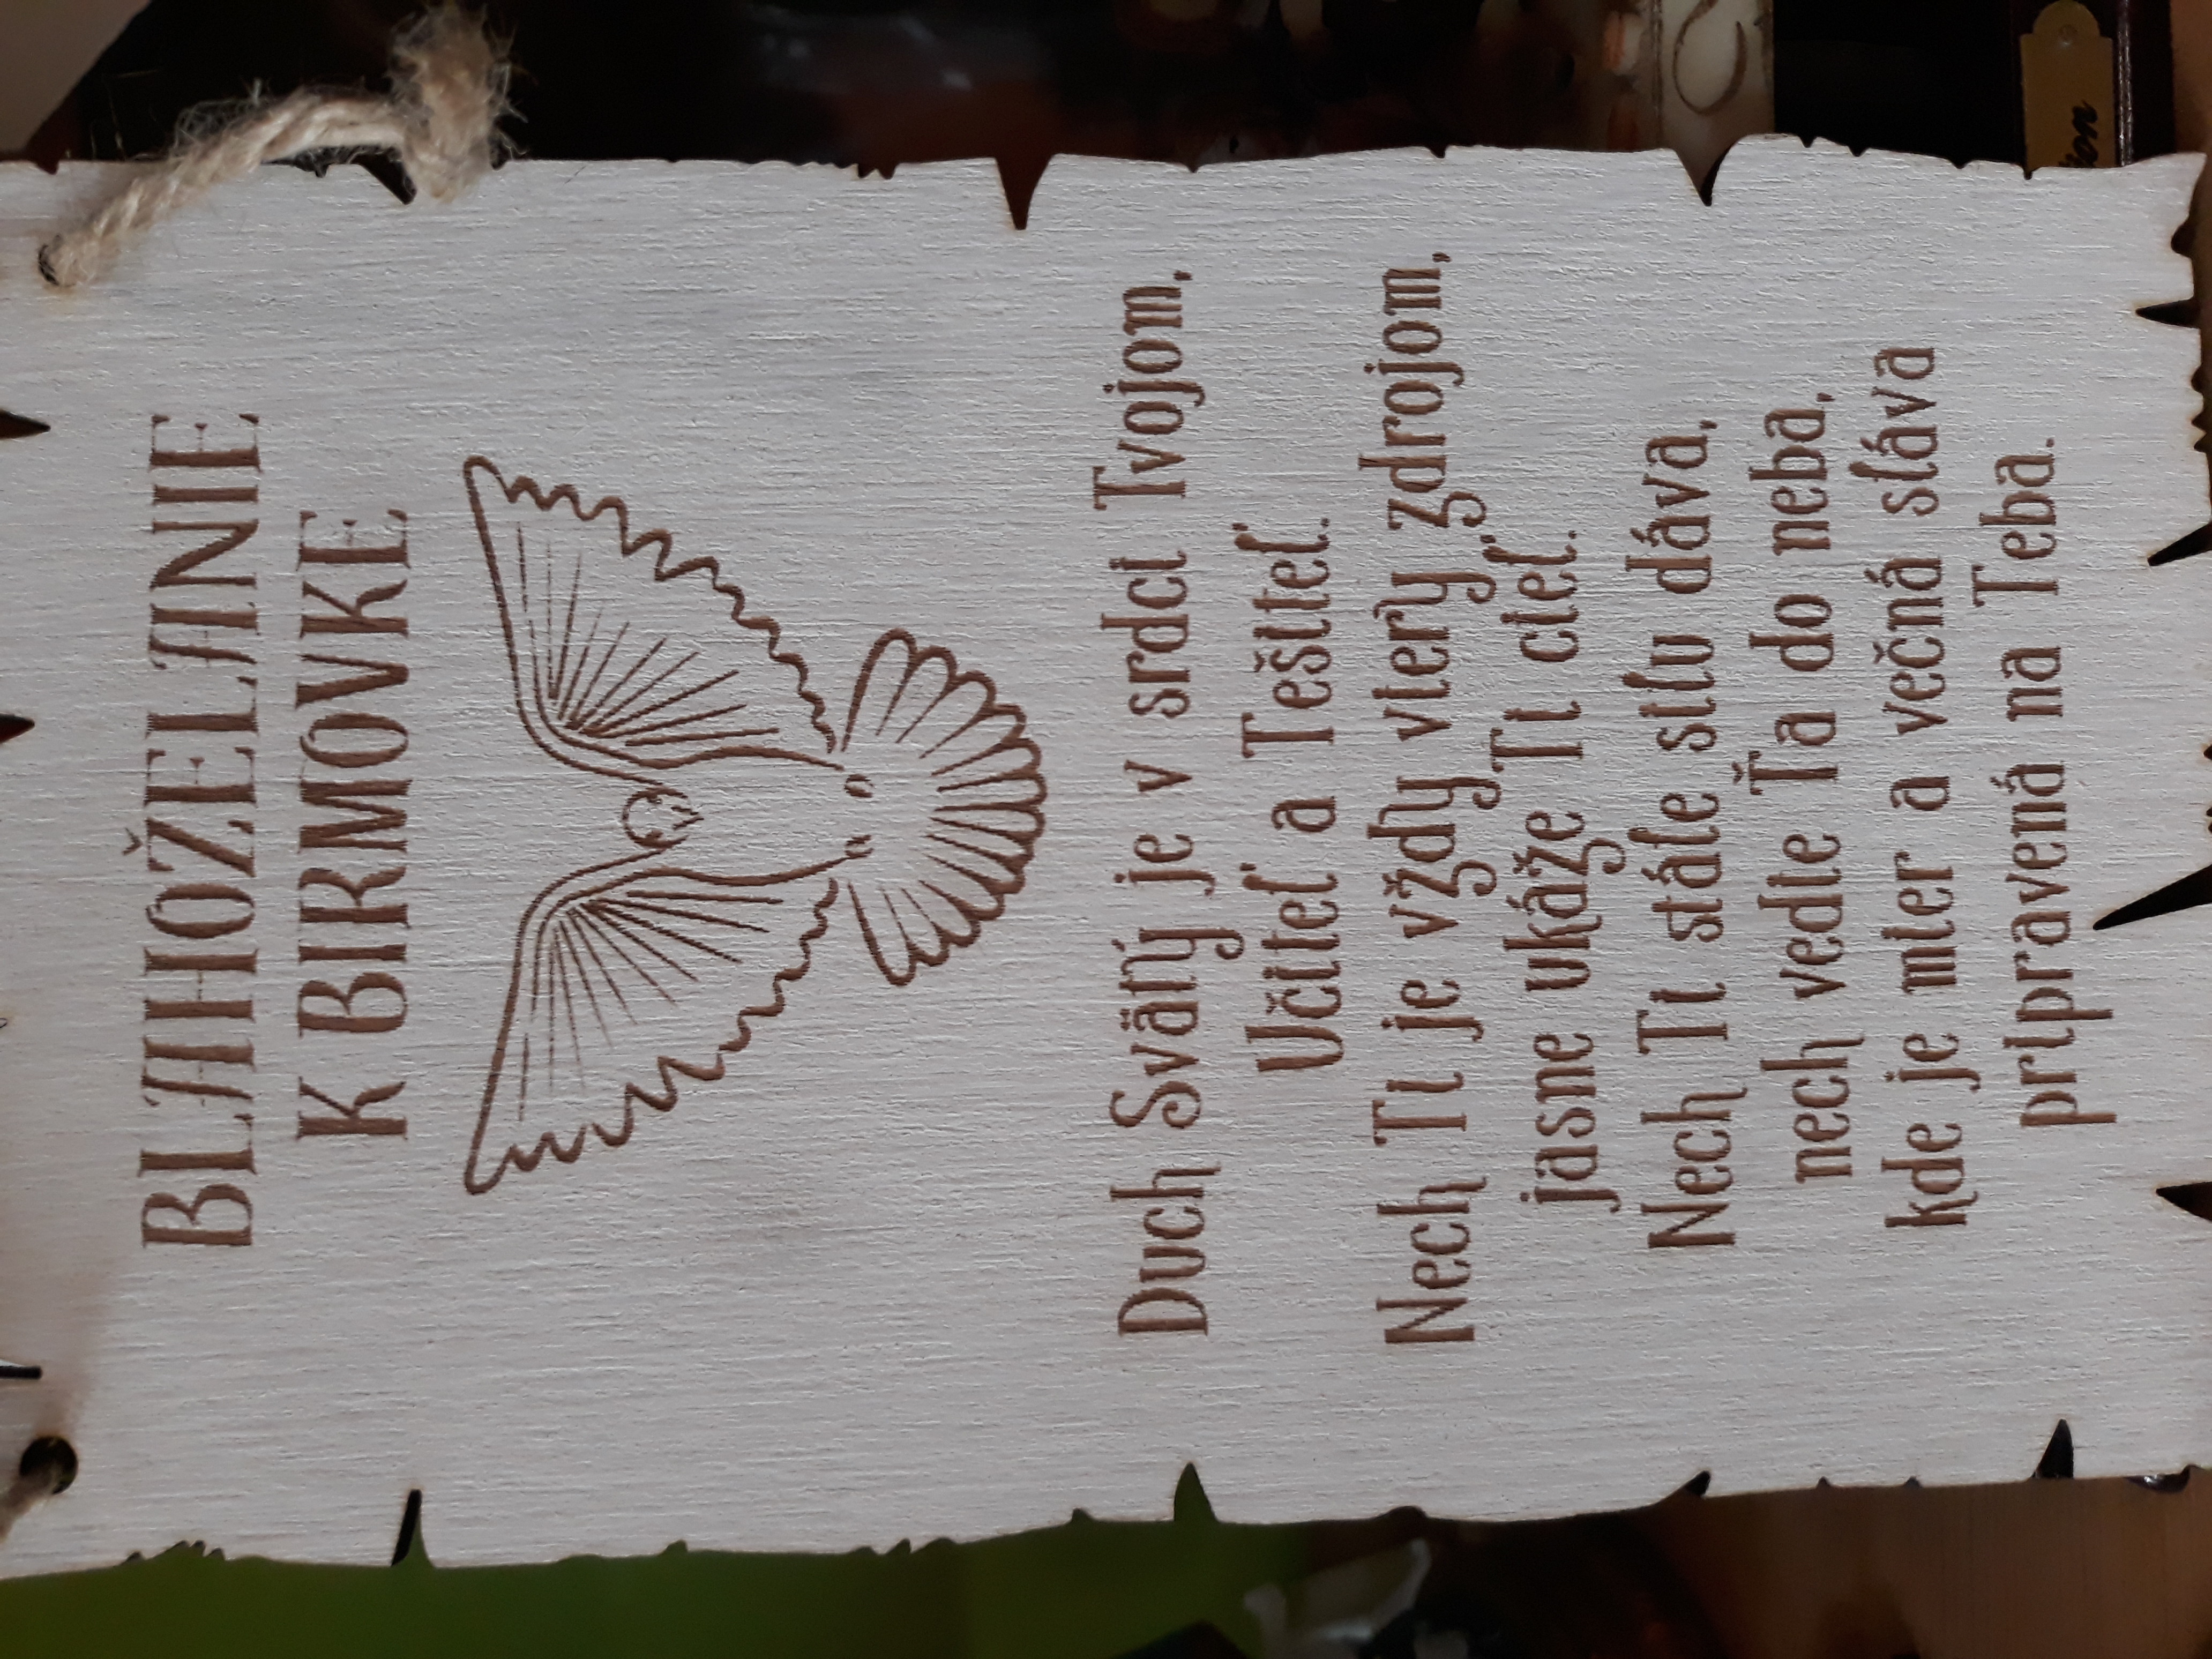 BLAHOŽELANIE
K BIRMOVKE
Duch Svätý je v srdci Tvojom,
Učiteľ a Tešiteľ.
Nech Ti je vždy viery zdrojom,
jasne ukáže Ti cieľ.
Nech Ti stále silu dáva,
nech vedie Ťa do neba,
kde je mier a večná sláva
pripravená na Teba.